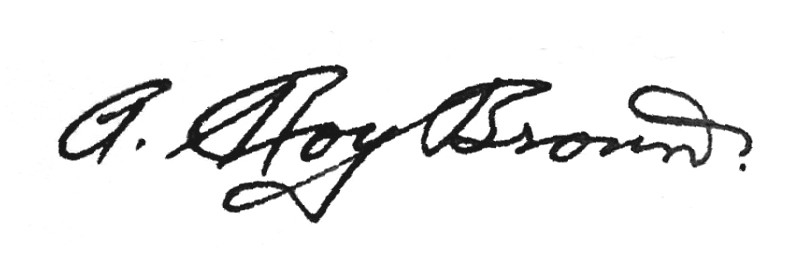 A. Roy Brown.